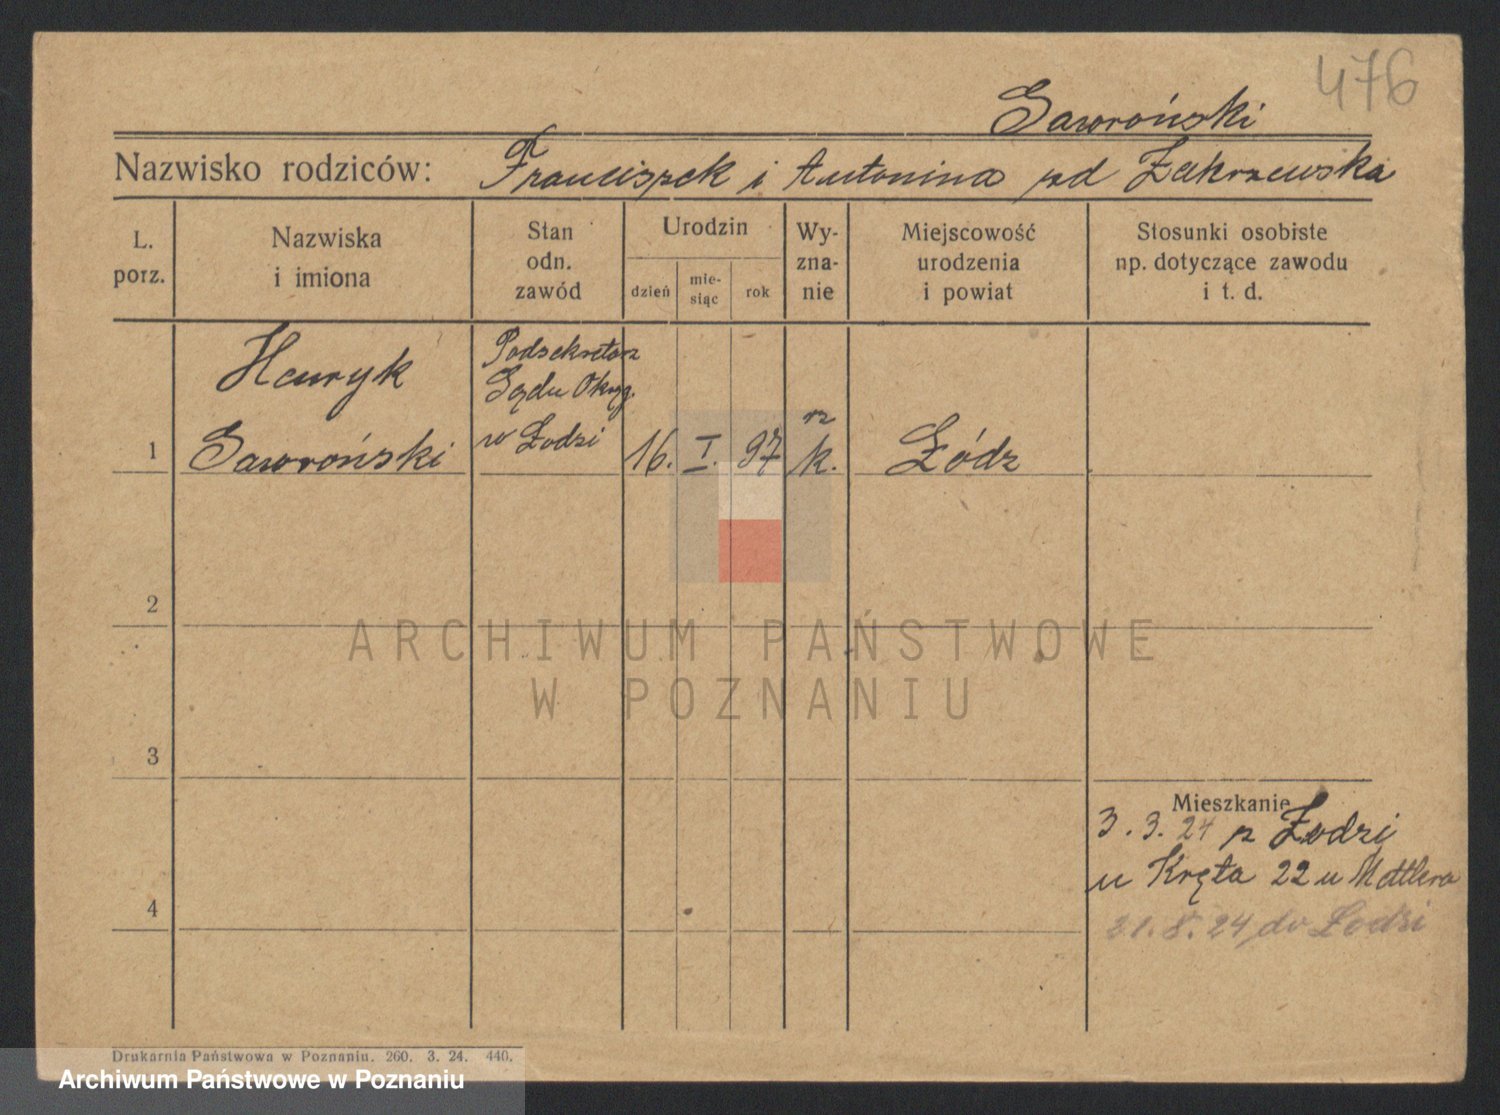 476
Gaworoński
Nazwisko rodziców: Franciszek i Antonina zd Zakrzewska
L. porz.
Nazwiska i imiona
Stan odn. zawód
Urodzin
dzień
mie-siąc
rok
Wy-zna-nie
Miejscowość urodzenia i powiat
Stosunki osobiste np. dotyczące zawodu i t. d.
Henryk
Gaworoński
Podsekretarz
Sądu Okręg.
w Łodzi
1
16. I. 97
rz
k.
Łódz
2
ARCHIWUM PAŃSTWOWE
W POZNANIU
3
Mieszkanie
3. 3. 24 z Łodzi
u Kręta 22 u Mettlera
21. 8. 24 do Łodzi
4
Drukarnia Państwowa w Poznaniu. 260. 3. 24. 440.
Archiwum Państwowe w Poznaniu